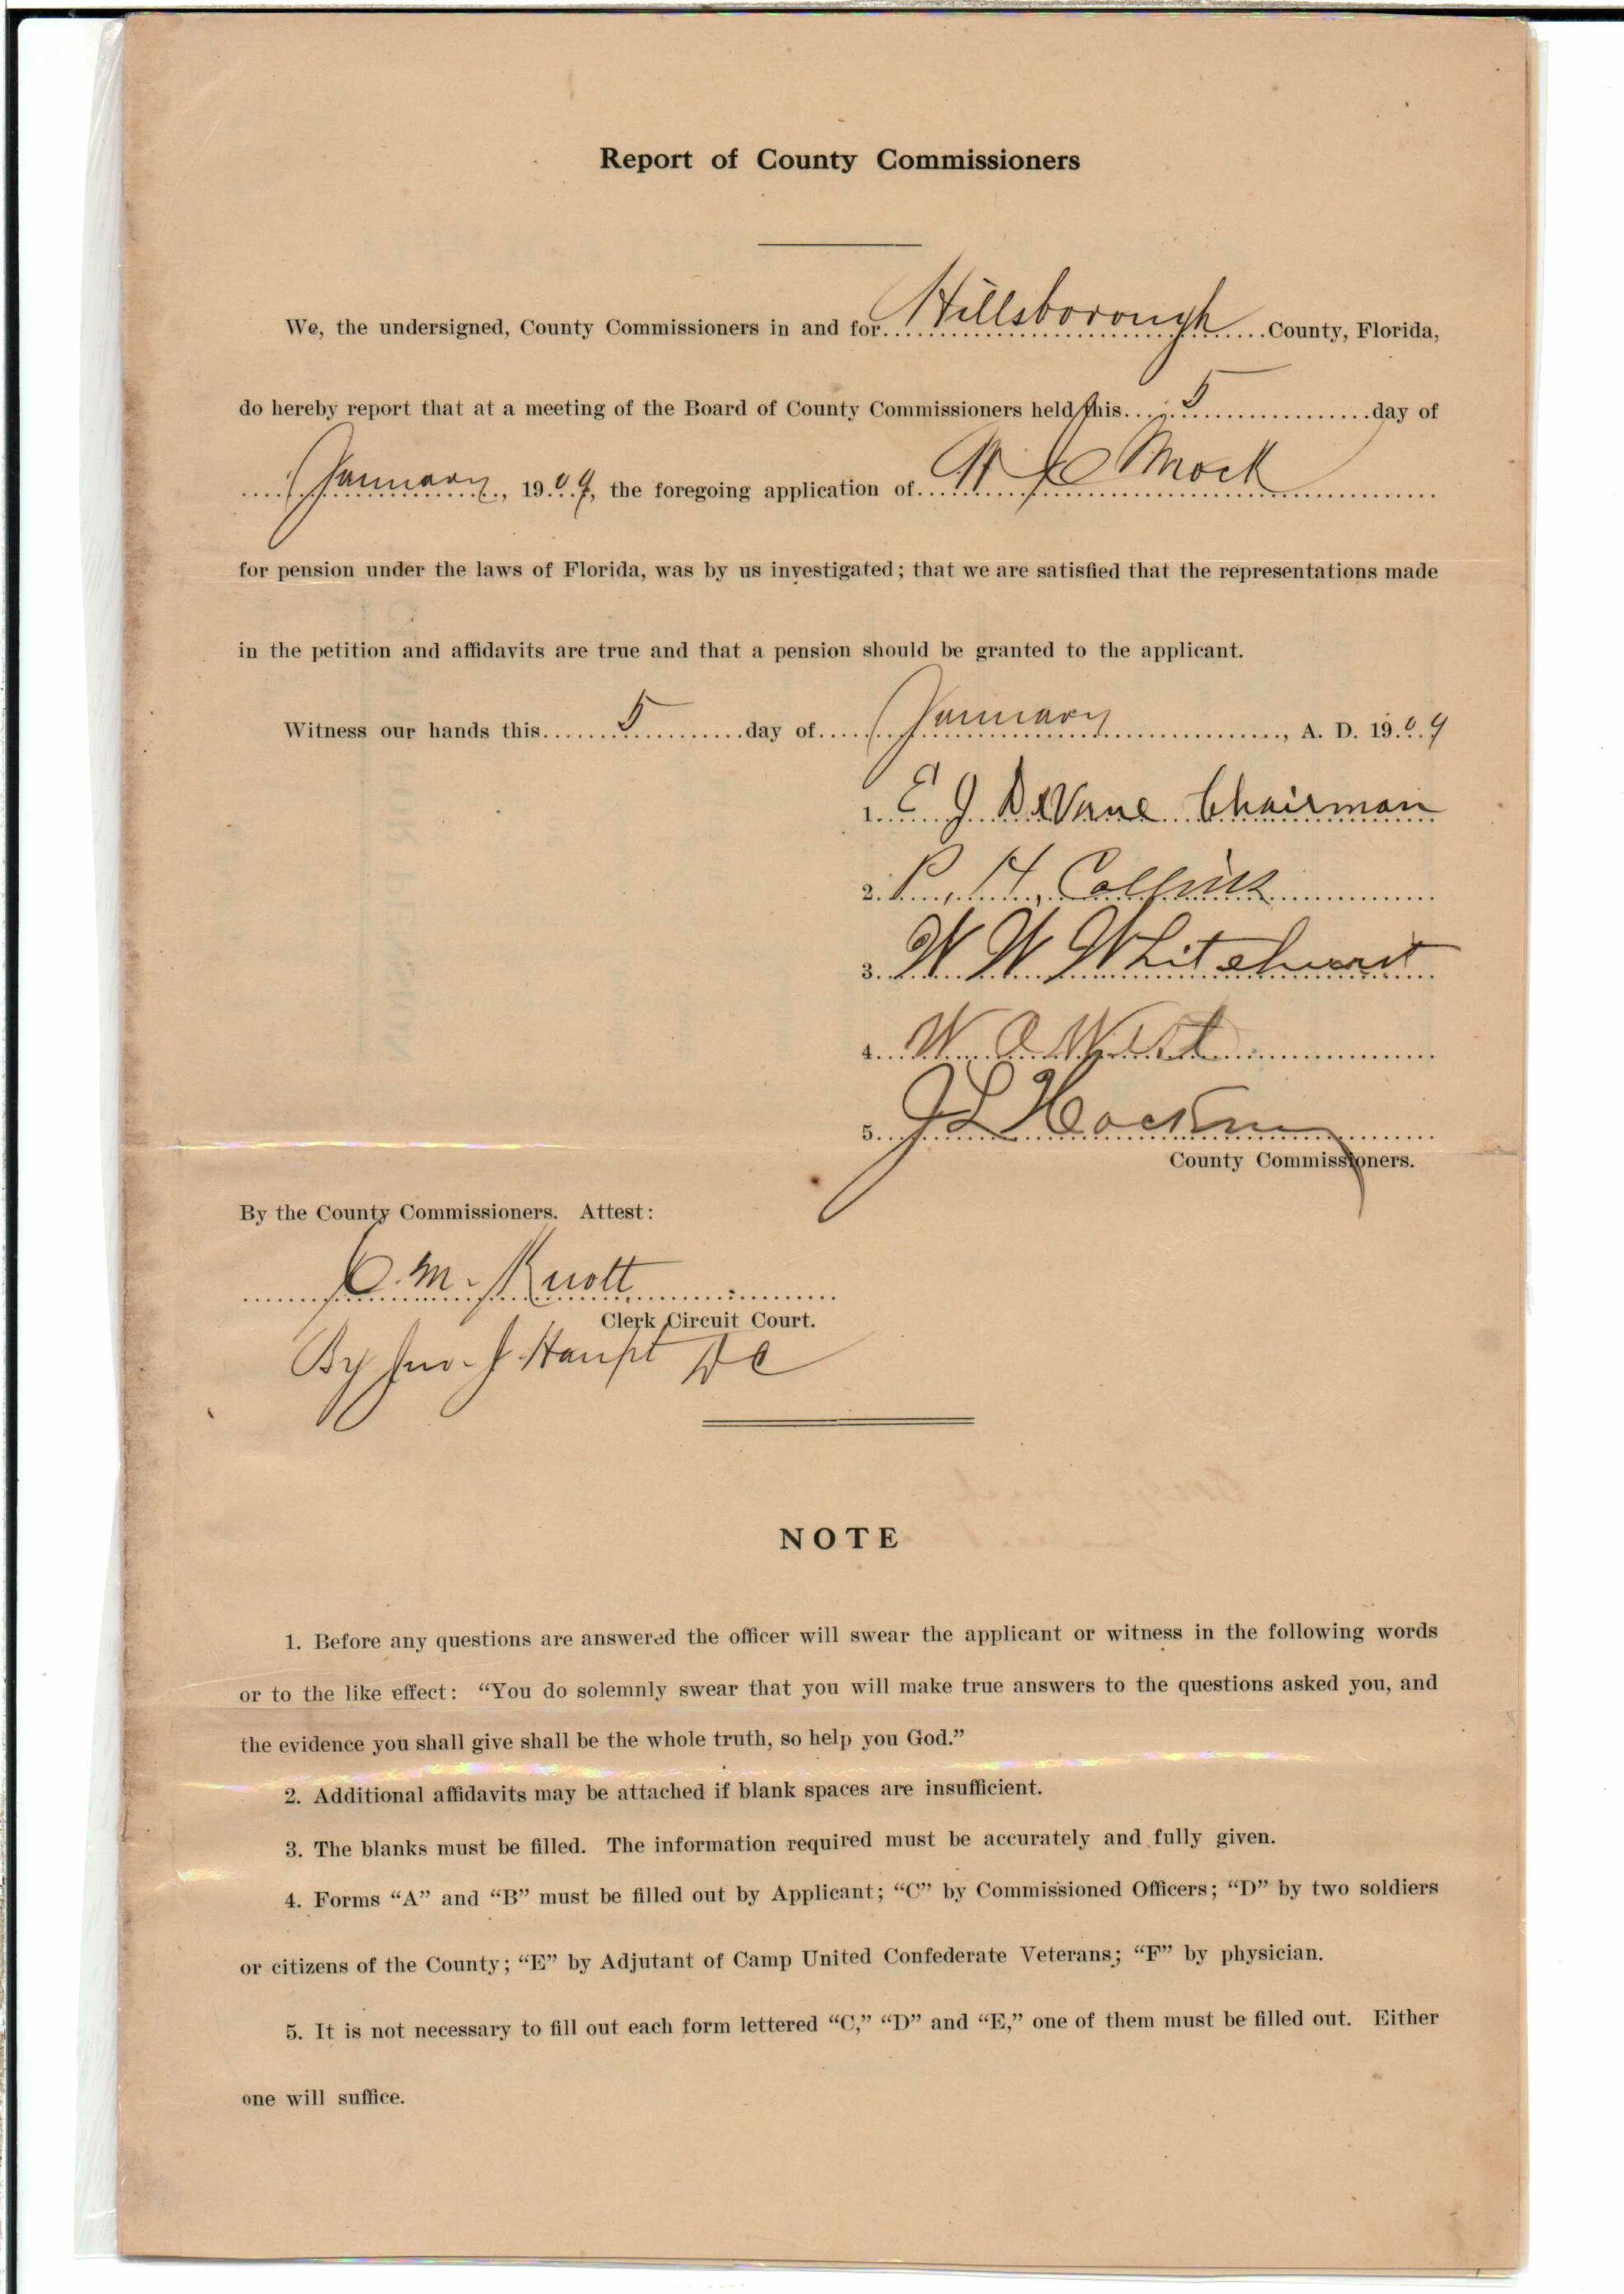 Report of County Commissioners
We, the undersigned, County Commissioners in and for Hillsborough County, Florida,
do hereby report that at a meeting of the Board of County Commissioners held this 5 day of
January, 1909, the foregoing application of Mock
for pension under the laws of Florida, was by us investigated; that we are satisfied that the representations made
in the petition and affidavits are true and that a pension should be granted to the applicant.
Witness our hands this 5 day of January, A. D. 1909
1. E J DeVane Chairman
2. P. H. Collins
3. W W Whitehurst
4. W.
5. J L Hackney
County Commissioners.
By the County Commissioners. Attest:
C. M. Knott
Clerk Circuit Court.
By Jno. J. Haupt DC
NOTE
1. Before any questions are answered the officer will swear the applicant or witness in the following words
or to the like effect: “You do solemnly swear that you will make true answers to the questions asked you, and
the evidence you shall give shall be the whole truth, so help you God.”
2. Additional affidavits may be attached if blank spaces are insufficient.
3. The blanks must be filled. The information required must be accurately and fully given.
4. Forms “A” and “B” must be filled out by Applicant; “C” by Commissioned Officers; “D” by two soldiers
or citizens of the County; “E” by Adjutant of Camp United Confederate Veterans; “F” by physician.
5. It is not necessary to fill out each form lettered “C,” “D” and “E,” one of them must be filled out. Either
one will suffice.